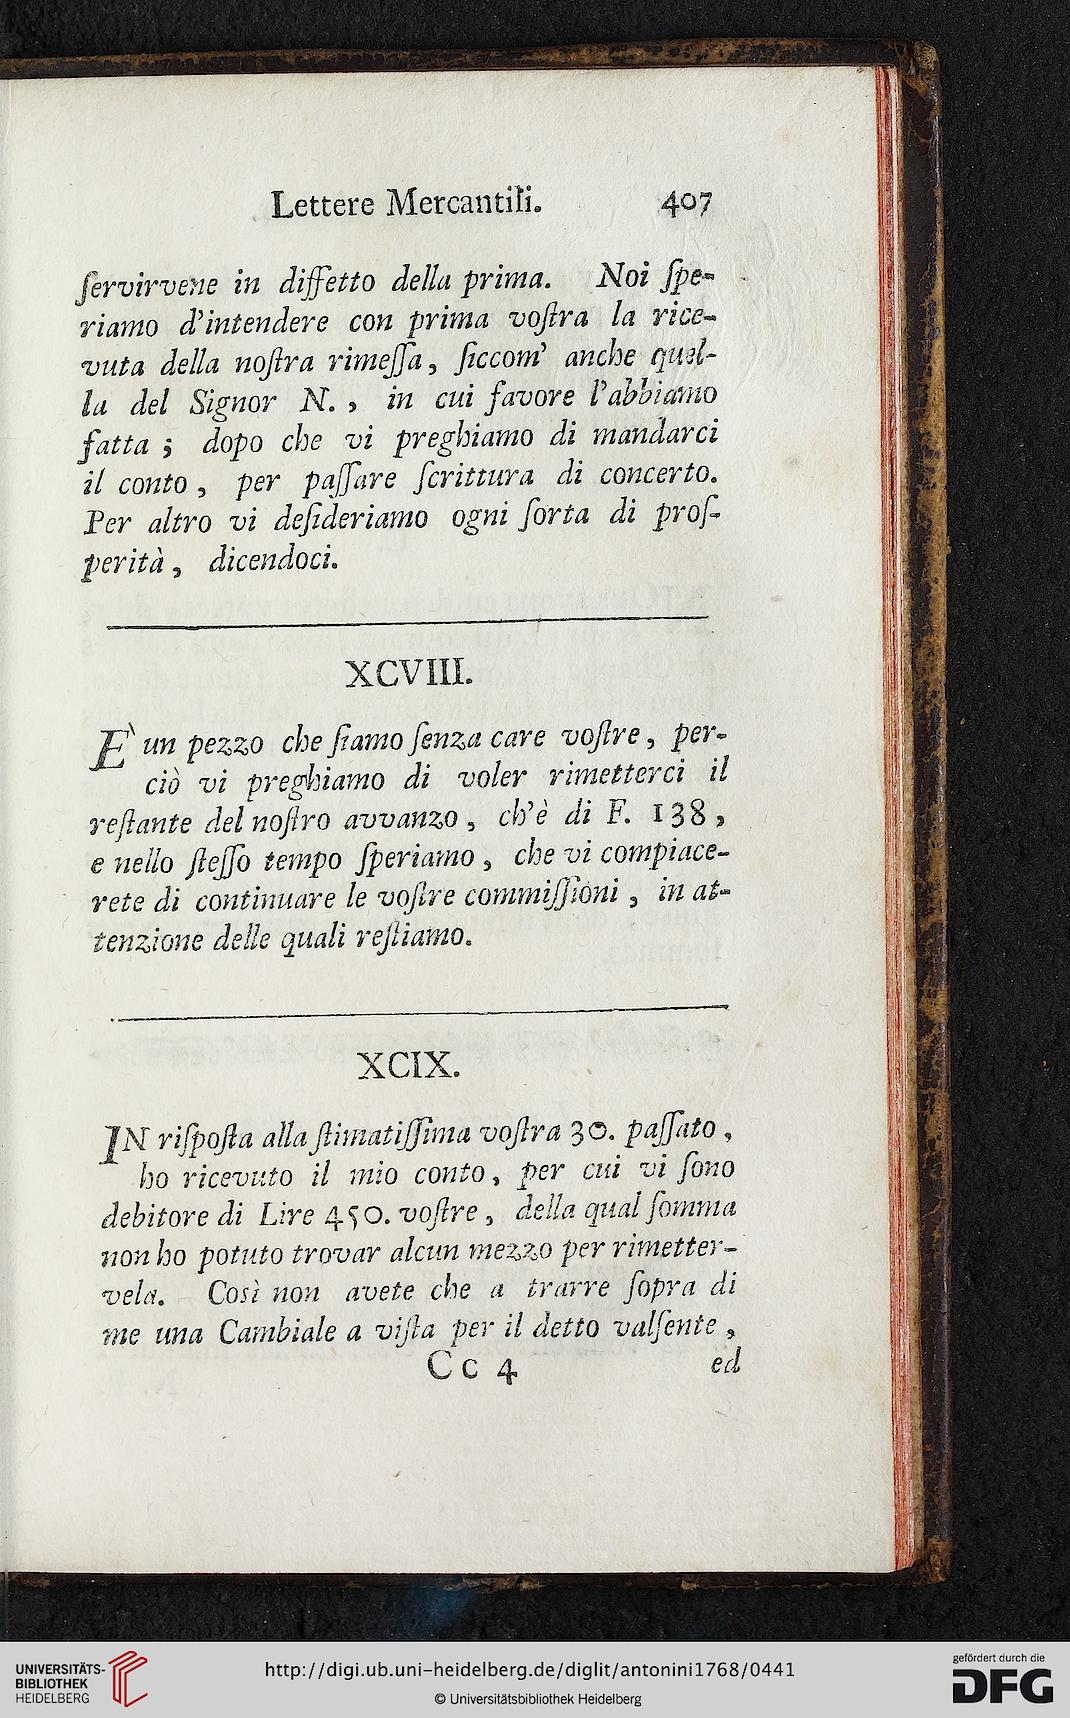 Lettere Mercantili. 407
ſervirvene in diffetto della prima. Noi ſpe-
riamo d'intendere con prima voſtra la rice-
vuta della noſtra rimeſſa, ſiccom' anche quel-
la del Signor N., in cui favore l'abbiamo
fatta; dopo che vi preghiamo di mandarci
il conto, per paſſare ſcrittura di concerto.
Per altro vi deſideriamo ogni ſorta di proſ-
perità, dicendoci.
XCVIII.
E' un pezzo che ſiamo ſenza care voſtre, per-
ciò vi preghiamo di voler rimetterci il
reſtante del noſtro avvanzo, ch'è di F. 138,
e nello ſteſſo tempo ſperiamo, che vi compiace-
rete di continuare le voſtre commiſſioni, in at-
tenzione delle quali reſtiamo.
XCIX.
IN riſpoſta alla ſtimatiſſima voſtra 30. paſſato,
ho ricevuto il mio conto, per cui vi ſono
debitore di Lire 450. voſtre, della qual ſomma
non ho potuto trovar alcun mezzo per rimetter-
vela. Così non avete che a trarre ſopra di
me una Cambiale a viſta per il detto valſente,
Cc 4 ed
UNIVERSITÄTS-
BIBLIOTHEK
HEIDELBERG
http://digi.ub.uni-heidelberg.de/diglit/antonini1768/0441
© Universitätsbibliothek Heidelberg
gefördert durch die
DFG